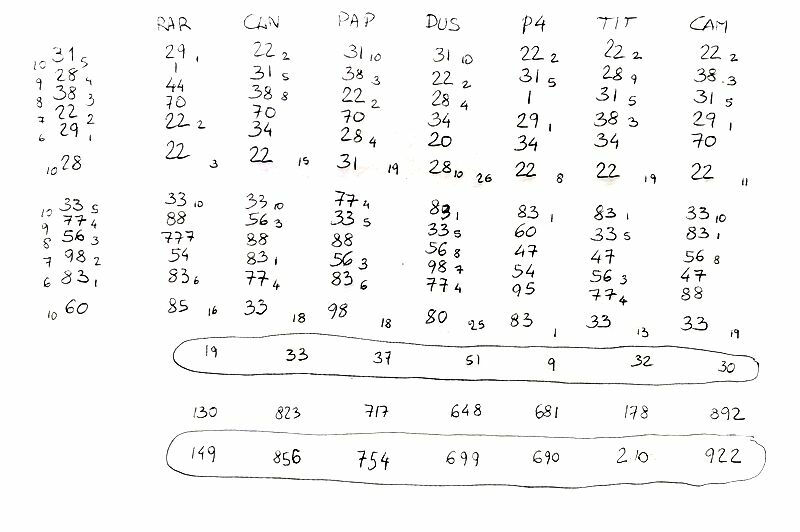 RAR CLN PAP DUS P4 TIT CAM
10 31 5 29 1 22 2 31 10 31 10 22 2 22 2 22 2
9 28 4 1 31 5 38 3 22 2 31 5 28 9 38 3
8 38 3 44 38 8 22 2 28 4 1 31 5 31 5
7 22 2 70 70 70 34 29 1 38 3 29 1
6 29 1 22 2 34 28 4 20 34 34 70
10 28 22 3 22 15 31 19 28 10 26 22 8 22 19 22 11
10 33 5 33 10 33 10 77 4 83 1 83 1 83 1 33 10
9 77 4 88 56 3 33 5 33 5 60 33 5 83 1
8 56 3 777 88 88 56 8 47 47 56 8
7 98 2 54 83 1 56 3 98 7 54 56 3 47
6 83 1 83 6 77 4 83 6 77 4 95 77 4 88
10 60 85 16 33 18 98 18 80 25 83 1 33 13 33 19
19 33 37 51 9 32 30
130 823 717 648 681 178 892
149 856 754 699 690 210 922